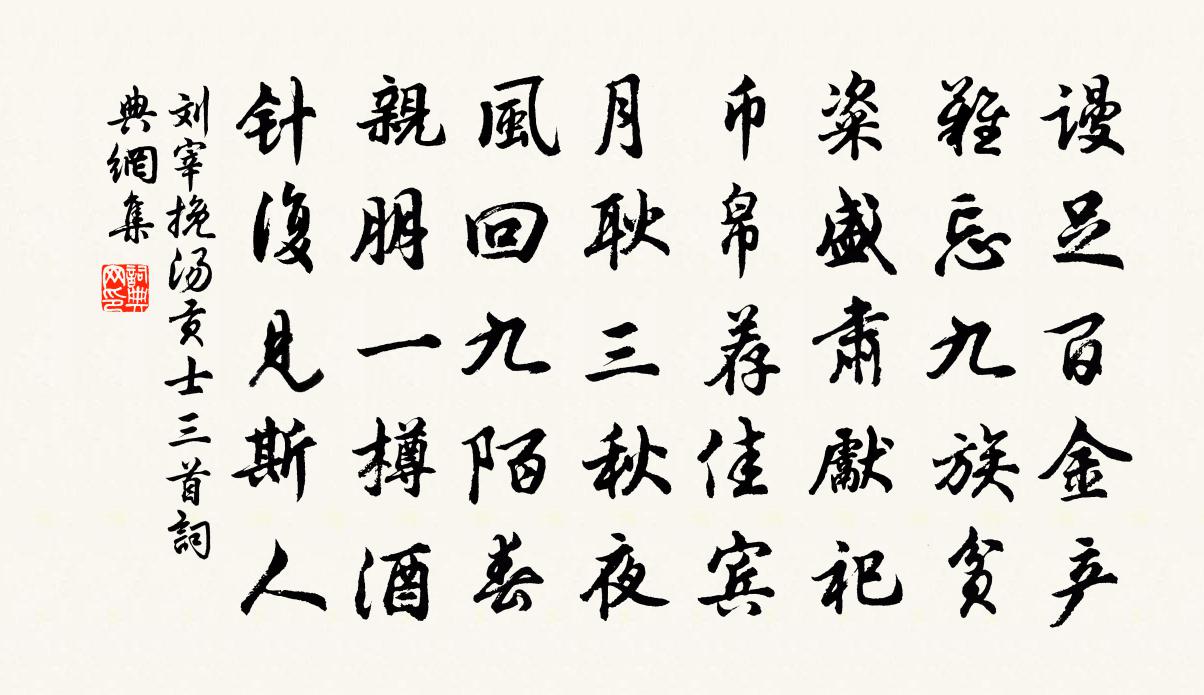 谩足百金产
難忘九族贫
粢盛肃獻祀
币帛荐佳宾
月耿三秋夜
風回九陌春
親朋一樽酒
针復見斯人
刘宰挽汤贡士三首詞
典網集
詞典网印